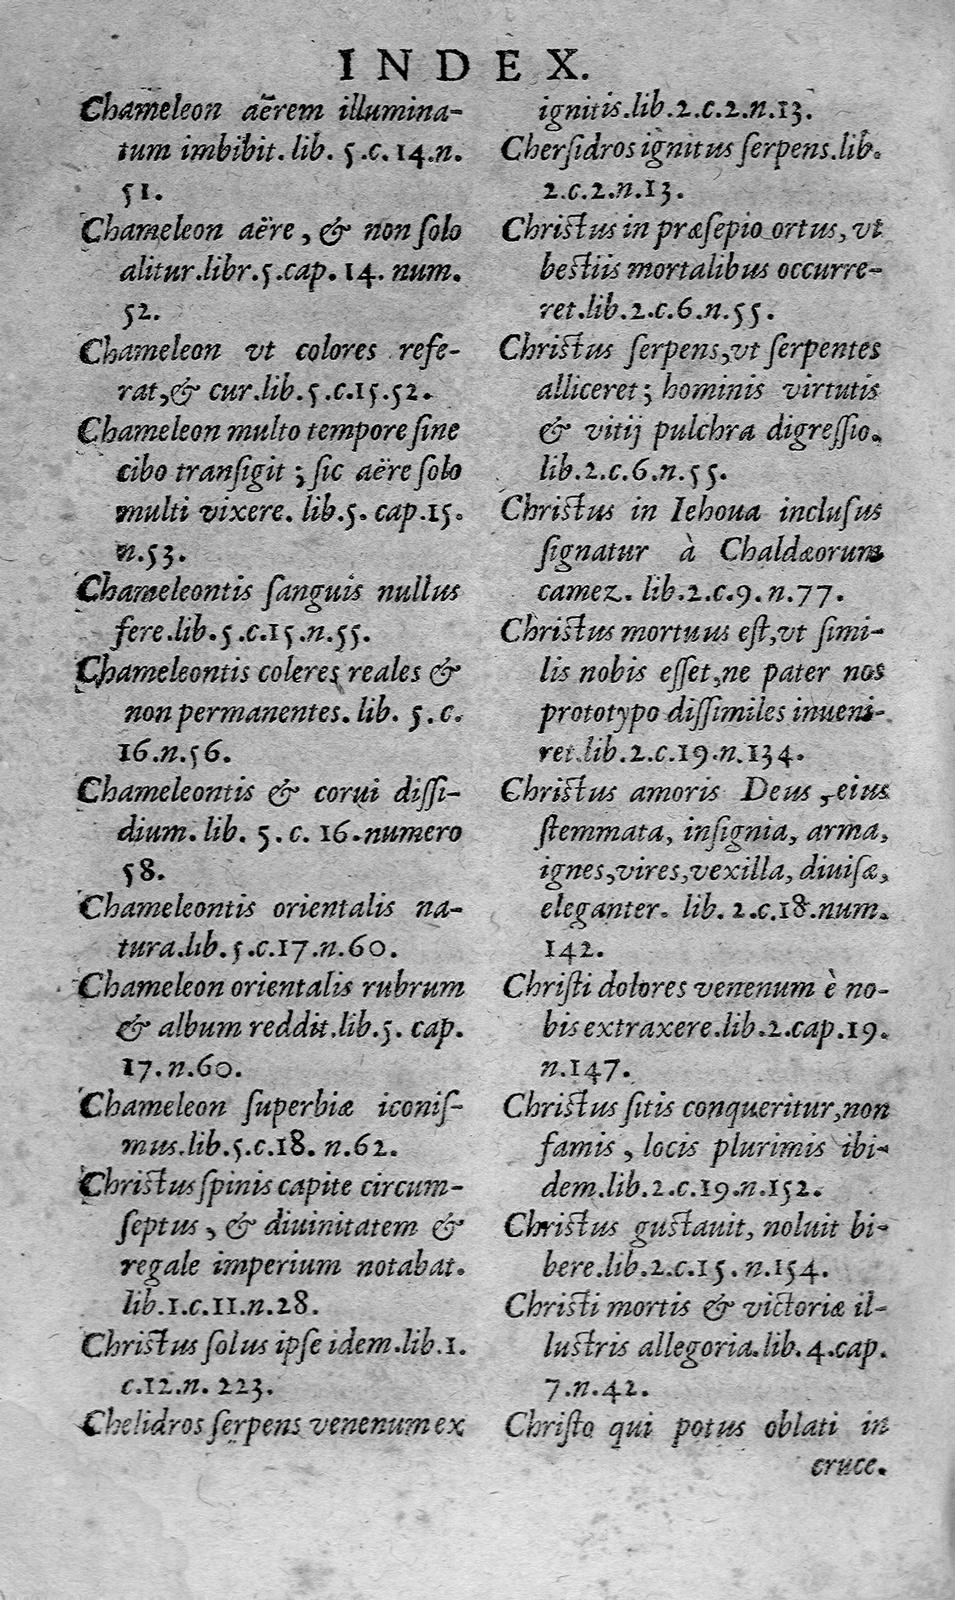 INDEX.
Chameleon aërem illumina-
tum imbibit. lib. 5.c.14.n.
51.
Chameleon aëre, & non ſolo
alitur.libr.5.cap.14. num.
52.
Chameleon vt colores refe-
rat,& cur.lib.5.c.15.52.
Chameleon multo tempore ſine
cibo tranſigit; ſic aëre ſolo
multi vixere. lib.5. cap.15.
n.53.
Chameleontis ſanguis nullus
fere.lib.5.c.15.n.55.
Chameleontis coleres reales &
non permanentes. lib. 5.c.
16.n.56.
Chameleontis & corui diſſi-
dium. lib. 5. c. 16.numero
58.
Chameleontis orientalis na-
tura.lib.5.c.17.n.60.
Chameleon orientalis rubrum
& album reddit.lib.5. cap.
17.n.60.
Chameleon ſuperbiæ iconiſ-
mus.lib.5.c.18. n.62.
Chriſtus ſpinis capite circum-
ſeptus, & diuinitatem &
regale imperium notabat.
lib.1.c.11.n.28.
Chriſtus ſolus ipſe idem.lib.1.
c.12.n. 223.
Chelidros ſerpens venenum ex
ignitis.lib.2.c.2.n.13.
Cherſidros ignitus ſerpens.lib.
2.c.2.n.13.
Chriſtus in præſepio ortus, vt
beſtiis mortalibus occurre-
ret.lib.2.c.6.n.55.
Chriſtus ſerpens,vt ſerpentes
alliceret; hominis virtutis
& vitij pulchra digreſſio.
lib.2.c.6.n.55.
Chriſtus in Iehoua incluſus
ſignatur à Chaldæorum
camez. lib.2.c.9.n.77.
Chriſtus mortuus eſt,vt ſimi-
lis nobis eſſet,ne pater nos
prototypo diſſimiles inueni-
ret.lib.2.c.19.n.134.
Chriſtus amoris Deus, eius
ſtemmata, inſignia, arma,
ignes,vires,vexilla, diuiſæ,
eleganter. lib. 2.c.18.num.
142.
Chriſti dolores venenum è no-
bis extraxere.lib.2.cap.19.
n.147.
Chriſtus ſitis conqueritur,non
famis, locis plurimis ibi-
dem.lib.2.c.19.n.152.
Chriſtus guſtauit, noluit bi-
bere.lib.2.c.15.n.154.
Chriſti mortis & victoriæ il-
luſtris allegoria.lib.4.cap.
7.n.42.
Chriſto qui potus oblati in
cruce.